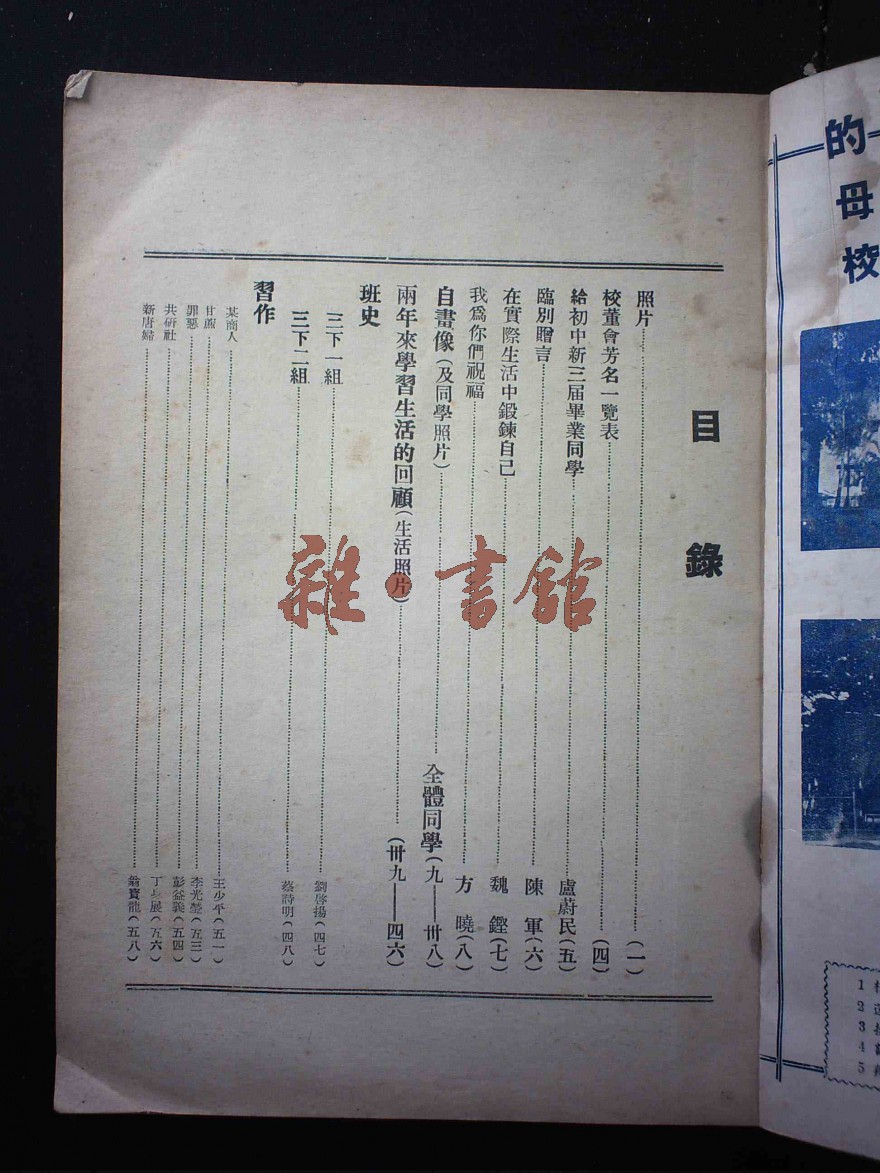 的母校
目錄
照片……(一)
校董會芳名一覽表……(四)
給初中新三届畢業同學……盧蔚民(五)
臨別贈言……陳軍(六)
在實際生活中鍛鍊自己……魏鏗(七)
我爲你們祝福……方曉(八)
自畫像(及同學照片)……全體同學(九——卅八)
兩年來學習生活的回顧(生活照片)……(卅九——四六)
班史
三下一組……劉啓揚(四七)
三下二組……蔡詩明(四八)
習作
某商人……王少平(五一)
甘蔗……李光瑩(五三)
罪惡……彭益義(五四)
共研社……丁展(五六)
新唐婦……寶龍(五八)
雜·書館
1
2
3
4
5